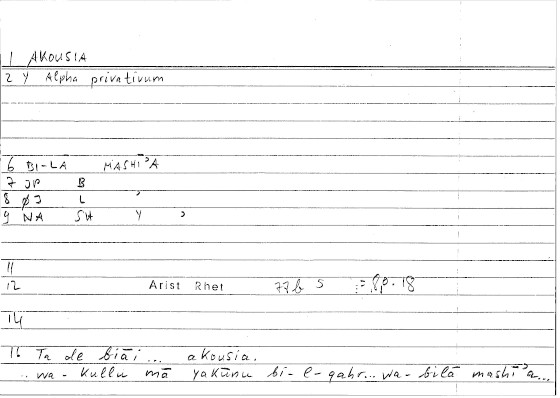 1 AKOUSIA
2 Y Alpha privativum
6 BI-LĀ MASHĪʾA
7 JP B
8 ØJ L ʾ
9 NA SH Y ʾ
11
12 Arist Rhet 77b 5 = 8p.18
14
16 Ta de biāi... akousia.
..wa-kullu mā yakūnu bi-l-qahr...wa-bilā mashīʾa...